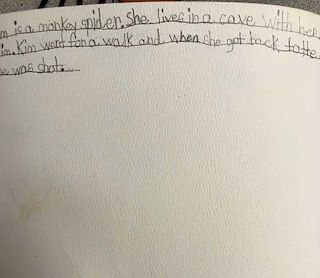 m is a monkey spider. She lives in a cave with her
im. Kim went for a walk and when she got back to the
he was shot.